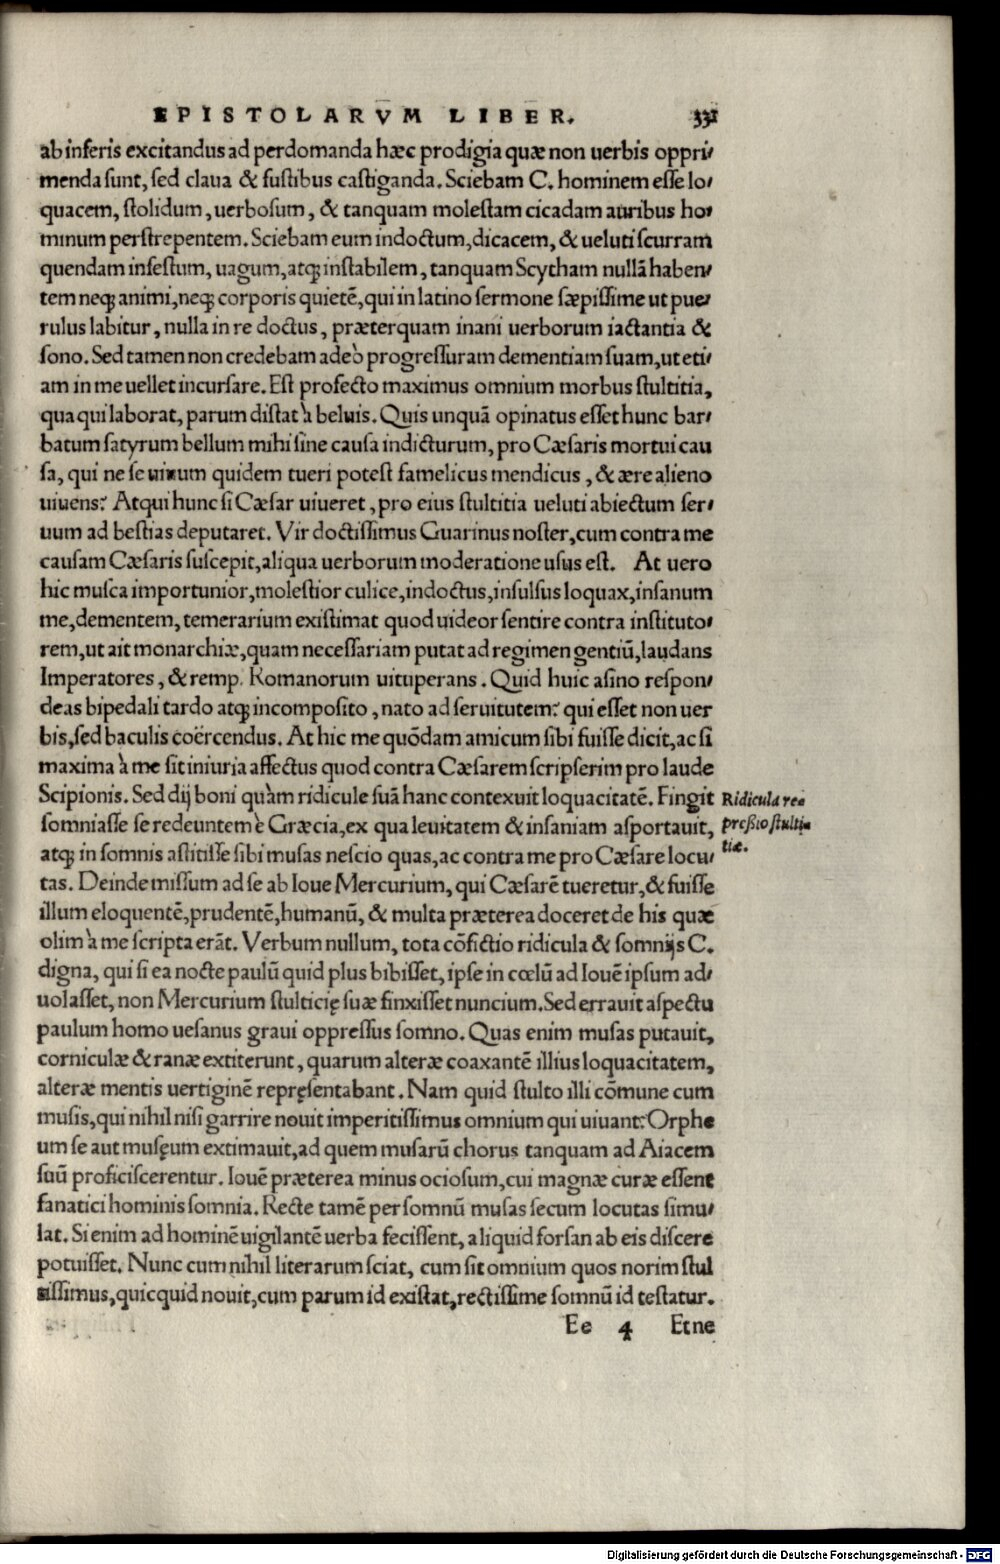 EPISTOLARVM LIBER. 331
ab inferis excitandus ad perdomanda hæc prodigia quæ non uerbis oppri/
menda sunt, sed claua & fustibus castiganda. Sciebam C. hominem esse lo/
quacem, stolidum, uerbosum, & tanquam molestam cicadam auribus ho/
minum perstrepentem. Sciebam eum indoctum, dicacem, & ueluti scurram
quendam infestum, uagum, atq; instabilem, tanquam Scytham nullã haben/
tem neq; animi, neq; corporis quietẽ, qui in latino sermone sæpissime ut pue/
rulus labitur, nulla in re doctus, præterquam inani uerborum iactantia &
sono. Sed tamen non credebam adeò progressuram dementiam suam, ut eti/
am in me uellet incursare. Est profecto maximus omnium morbus stultitia,
qua qui laborat, parum distat à beluis. Quis unquã opinatus esset hunc bar/
batum satyrum bellum mihi sine causa indicturum, pro Cæsaris mortui cau
sa, qui ne se uiuum quidem tueri potest famelicus mendicus, & ære alieno
uiuens? Atqui hunc si Cæsar uiueret, pro eius stultitia ueluti abiectum ser/
uum ad bestias deputaret. Vir doctissimus Guarinus noster, cum contra me
causam Cæsaris suscepit, aliqua uerborum moderatione usus est. At uero
hic musca importunior, molestior culice, indoctus, insulsus loquax, insanum
me, dementem, temerarium existimat quod uideor sentire contra instituto/
rem, ut ait monarchiæ, quam necessariam putat ad regimen gentiũ, laudans
Imperatores, & remp. Romanorum uituperans. Quid huic asino respon/
deas bipedali tardo atq; incomposito, nato ad seruitutem? qui esset non uer
bis, sed baculis coërcendus. At hic me quõdam amicum sibi fuisse dicit, ac si
maxima à me sit iniuria affectus quod contra Cæsarem scripserim pro laude
Scipionis. Sed dij boni quàm ridicule suã hanc contexuit loquacitatẽ. Fingit
somniasse se redeuntem è Græcia, ex qua leuitatem & insaniam asportauit,
atq; in somnis astitisse sibi musas nescio quas, ac contra me pro Cæsare locu/
tas. Deinde missum ad se ab Ioue Mercurium, qui Cæsarẽ tueretur, & fuisse
illum eloquentẽ, prudentẽ, humanũ, & multa præterea doceret de his quæ
olim à me scripta erãt. Verbum nullum, tota cõfictio ridicula & somnijs C.
digna, qui si ea nocte paulũ quid plus bibisset, ipse in cœlũ ad Iouẽ ipsum ad/
uolasset, non Mercurium stulticię suæ finxisset nuncium. Sed errauit aspectu
paulum homo uesanus graui oppressus somno. Quas enim musas putauit,
corniculæ & ranæ extiterunt, quarum alteræ coaxantẽ illius loquacitatem,
alteræ mentis uertiginẽ repręsentabant. Nam quid stulto illi cõmune cum
musis, qui nihil nisi garrire nouit imperitissimus omnium qui uiuant? Orphe
um se aut musęum extimauit, ad quem musarũ chorus tanquam ad Aiacem
suũ proficiscerentur. Iouẽ præterea minus ociosum, cui magnæ curæ essent
fanatici hominis somnia. Recte tamẽ per somnũ musas secum locutas simu/
lat. Si enim ad hominẽ uigilantẽ uerba fecissent, aliquid forsan ab eis discere
potuisset. Nunc cum nihil literarum sciat, cum sit omnium quos norim stul
tissimus, quicquid nouit, cum parum id existat, rectissime somnũ id testatur.
Ee 4 Et ne
Ridicula re
preßio stulti
tiæ.
Digitalisierung gefördert durch die Deutsche Forschungsgemeinschaft - DFG